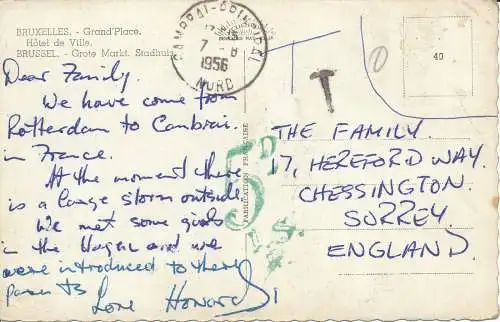 BRUXELLES. - Grand'Place.
Hôtel de Ville.
BRUSSEL. - Grote Markt. Stadhuis.
CAMBRAI-PRINCIPAL
7 - 8
1956
NORD
40
T
T
Dear Family.
We have come from
Rotterdam to Cambrai.
in France.
At the moment there
is a large storm outside
We met some girls
in the Hague and we
were introduced to there
parents
Love Howard
FABRICATION FRANÇAISE
5D
THE FAMILY.
17, HEREFORD WAY.
CHESSINGTON.
SURREY.
ENGLAND.